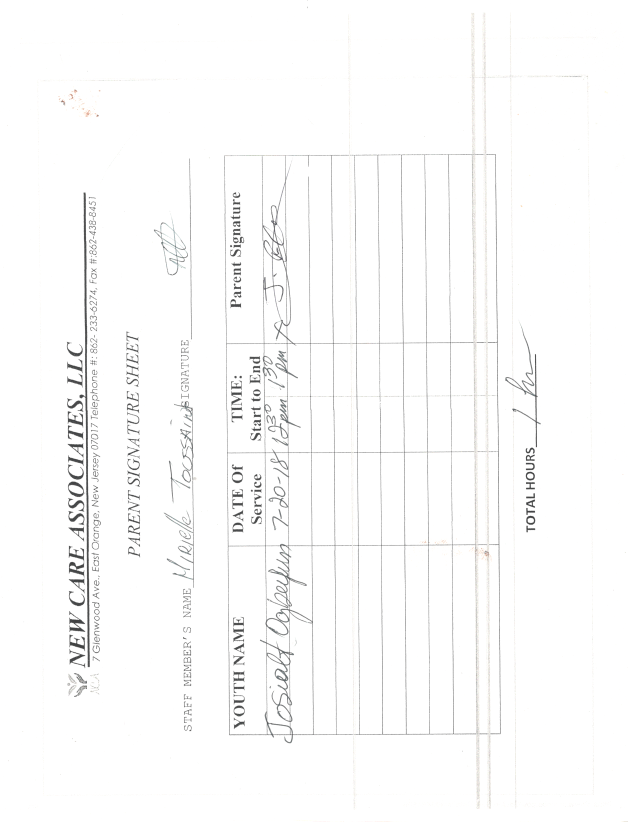 NEW CARE ASSOCIATES, LLC
7 Glenwood Ave., East Orange, New Jersey 07017 Telephone #: 862- 233-6274, Fax #:862-438-8451
PARENT SIGNATURE SHEET
STAFF MEMBER'S NAME Mirielle Toussaint SIGNATURE
YOUTH NAME DATE Of Service TIME: Start to End Parent Signature
7-20-18 12:30 pm 1:30 pm x J.
TOTAL HOURS 1 hr